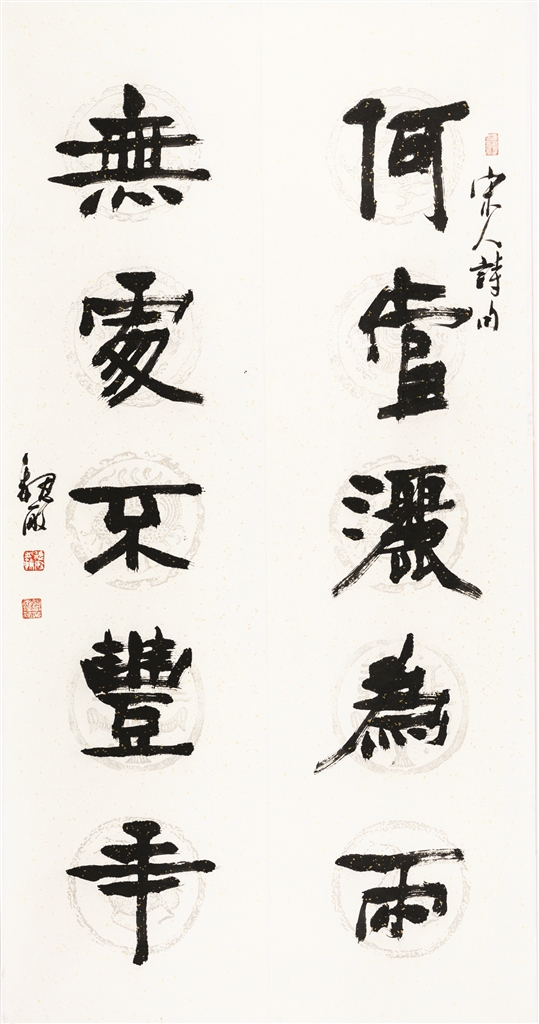 宋人詩句
何當灑為雨
無處不豐年